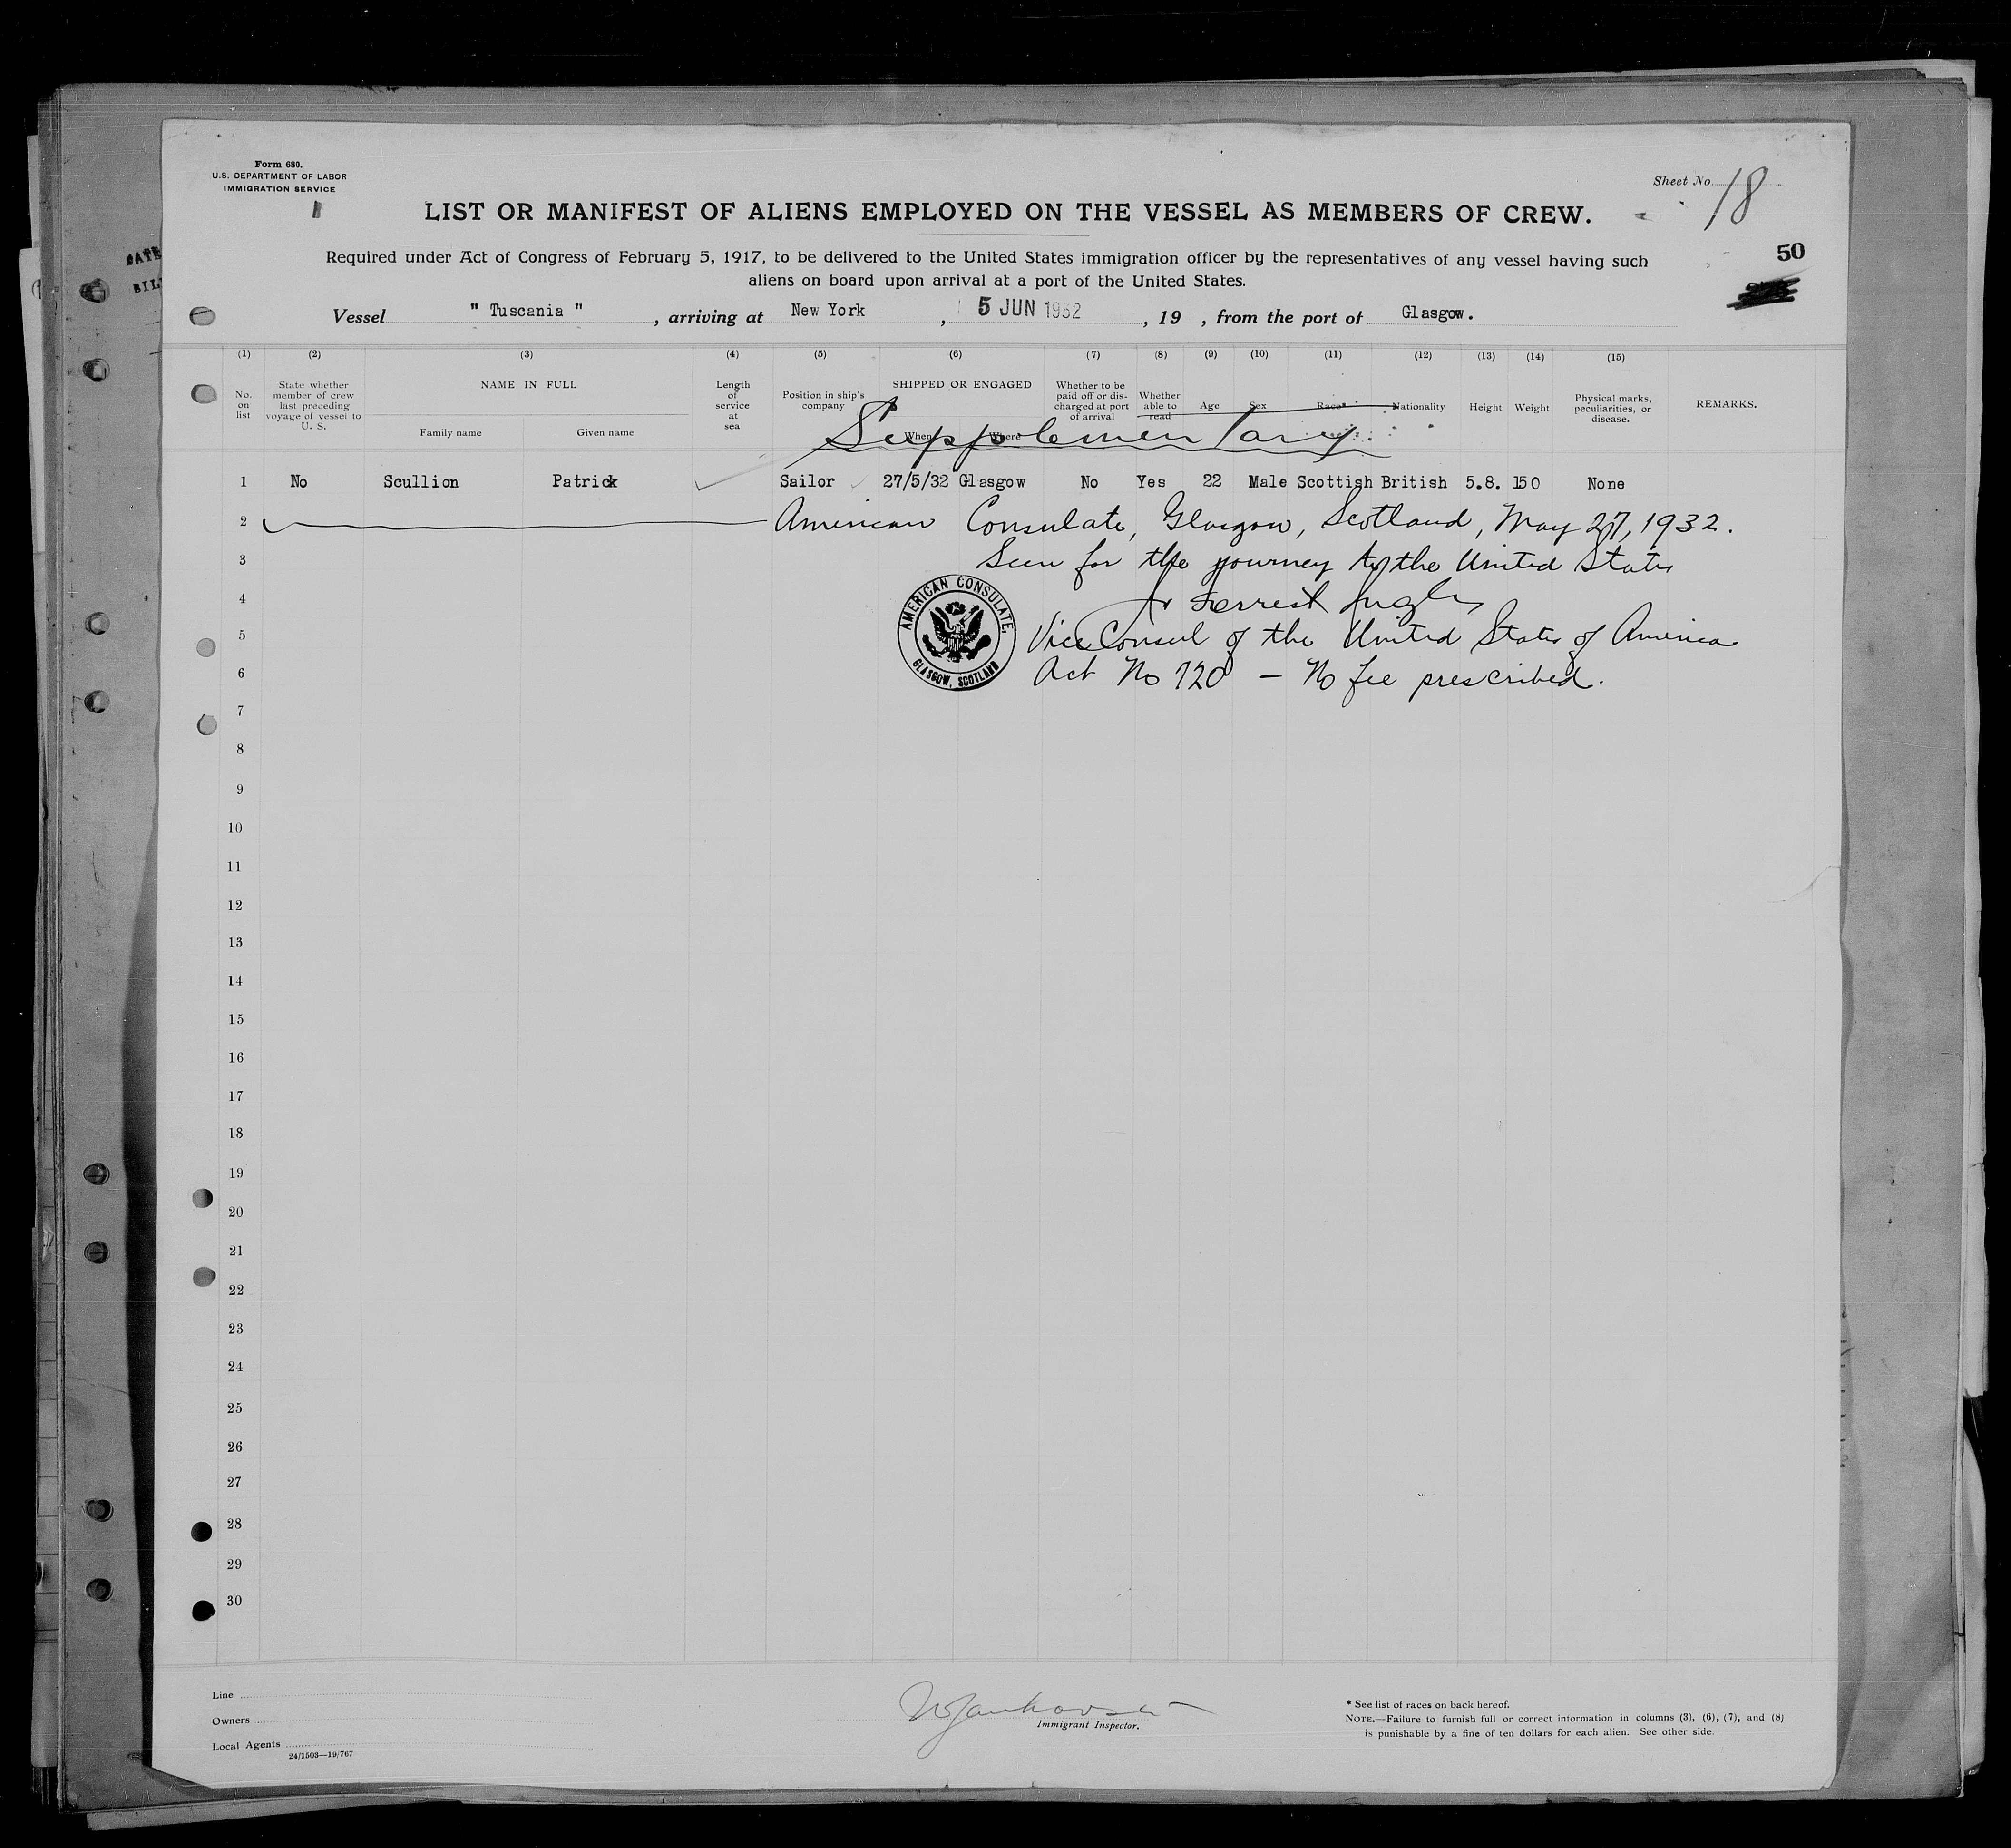 Form 680.
U.S. DEPARTMENT OF LABOR
IMMIGRATION SERVICE
Sheet No. 18
LIST OR MANIFEST OF ALIENS EMPLOYED ON THE VESSEL AS MEMBERS OF CREW.
50
Required under Act of Congress of February 5, 1917, to be delivered to the United States immigration officer by the representatives of any vessel having such
aliens on board upon arrival at a port of the United States.
Vessel " Tuscania " , arriving at New York , 5 JUN 1932 , 19 , from the port of Glasgow.
(1) (2) (3) (4) (5) (6) (7) (8) (9) (10) (11) (12) (13) (14) (15)
No. on list
State whether member of crew last preceding voyage of vessel to U. S.
NAME IN FULL
Family name
Given name
Length of service at sea
Position in ship's company
SHIPPED OR ENGAGED
When
Where
Whether to be paid off or discharged at port of arrival
Whether able to read
Age
Sex
Race*
Nationality
Height
Weight
Physical marks, peculiarities, or disease.
REMARKS.
Supplementary
1 No Scullion Patrick Sailor 27/5/32 Glasgow No Yes 22 Male Scottish British 5.8. 150 None
2 American Consulate, Glasgow, Scotland, May 27, 1932.
3 Seen for the journey to the United States
4 Forrest
AMERICAN CONSULATE,
GLASGOW, SCOTLAND
5 Vice Consul of the United States of America
6 Act No 720 — No fee prescribed.
7
8
9
10
11
12
13
14
15
16
17
18
19
20
21
22
23
24
25
26
27
28
29
30
Line
Owners
Local Agents
24/1503—19/767
Immigrant Inspector.
* See list of races on back hereof.
NOTE.—Failure to furnish full or correct information in columns (3), (6), (7), and (8)
is punishable by a fine of ten dollars for each alien. See other side.